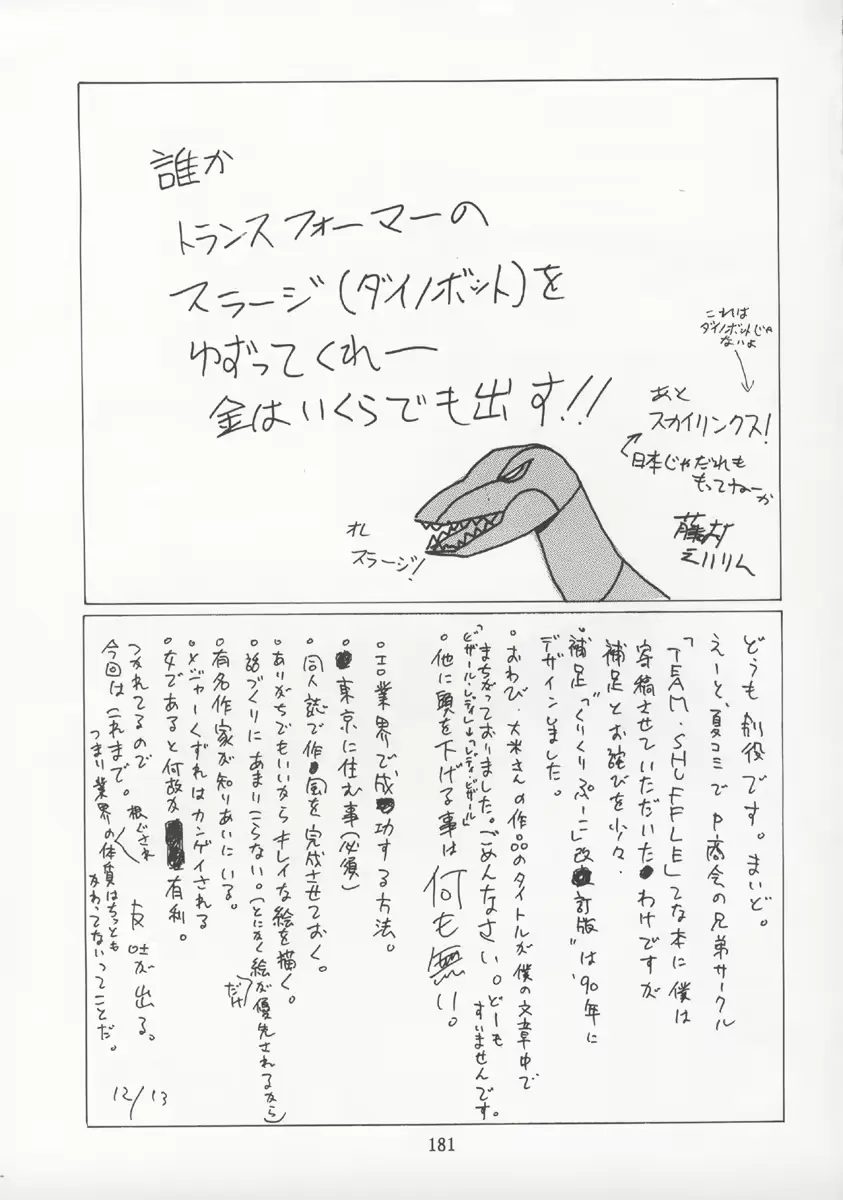 誰か
トランスフォーマーの
スラージ(ダイノボット)を
ゆずってくれー
金はいくらでも出す!!
これは
ダイノボットじゃ
ないよ
あと
スカイリンクス!
日本じゃだれも
もってねーか
オレ
スラージ!
どうも 剣役です。まいど。
えーと、夏コミでP商会の兄弟サークル
「TEAM・SHUFFLE」てな本に僕は
寄稿させていただいたわけですが
補足とお詫びを少々.
補足「くりくりぷーこ改訂版"は'90年に
デザインしました。
おわび・大米さんの作品のタイトルが僕の文章中で
まちがっておりました。ごめんなさい。どーも
すいませんです。
他に頭を下げる事は 何も無い。
エロ業界で成功する方法。
東京に住む事(必須)
同人誌で作品を完成させておく。
ありがちでもいいからキレイな絵を描く。
話づくりにあまりこらない。(とにかく絵が優先されるから)
だけ
有名作家が知りあいにいる。
メジャーくずれはカンゲイされる
女であると何故か有利。
つかれてるので
今回はこれまで。
反吐が出る。
根ぐされ
つまり業界の体質はちっとも
かわってないってことだ。
12/13
181